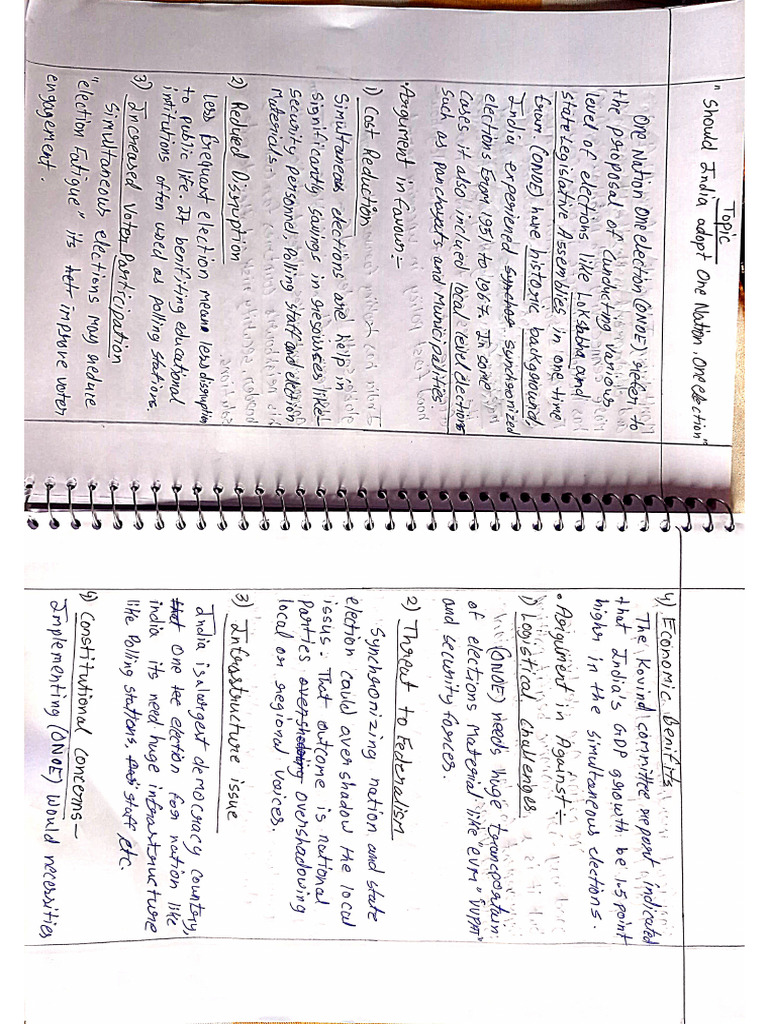 Topic
"Should India adopt One Nation, One election"
One Nation One election (ONOE) refer to
the proposal of Conducting various
level of elections like Loksabha and
State Legislative Assemblies in one time
from (ONOE) have historic background.
India experienced synchronized
elections from 1951 to 1967. In some
cases it also included local level elections
such as panchayats and Municipalities
• Argument in favour:-
1) Cost Reduction
Simultaneous elections are help in
significantly savings in resources like-
security personnel, Polling staff and election
Materials.
2) Reduced Disruption
less frequent election means less disruption
to public life. It benifiting educational
intitutions often used as polling stations.
3) Increased Voter Participation
Simultaneous elections may reduce
"election Fatigue" its improve voter
engagement
4) Economic Benifits
The Kovind committee report indicated
that India's GDP growth be 1.5 point
higher in the simultaneous elections.
• Argument in Against :-
1) Logistical challenges
(ONOE) needs huge transportain
of elections Material like "EVM" "VVPAT"
and security forces.
2) Threat to Federalism
Synchronizing nation and state
election could over shadow the local
issus. That outcome is national
parties overshadowing
local or regional voices.
3) Infrastructure issue
India is largest democracy country,
One election for nation like
india its need huge infrastructure
like Polling stations, staff etc.
4) Constitutional Concerns-
Implementing (ONOE) would necessities